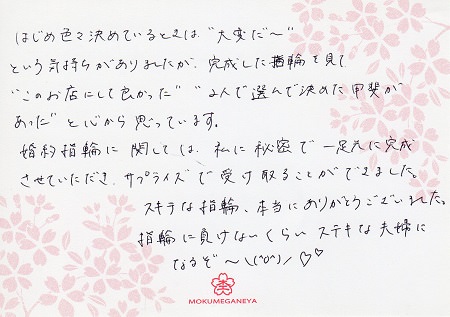 はじめ色々決めているときは"大変だ〜"
という気持ちがありましたが、完成した指輪を見て
"このお店にして良かった" "2人で選んで決めた甲斐が
あった"と心から思っています。
婚約指輪に関しては、私に秘密で一足先に完成
させていただき、サプライズで受け取ることができました。
ステキな指輪、本当にありがとうございました。
指輪に負けないくらいステキな夫婦に
なるぞ〜\(^o^)/♡♡
MOKUMEGANEYA